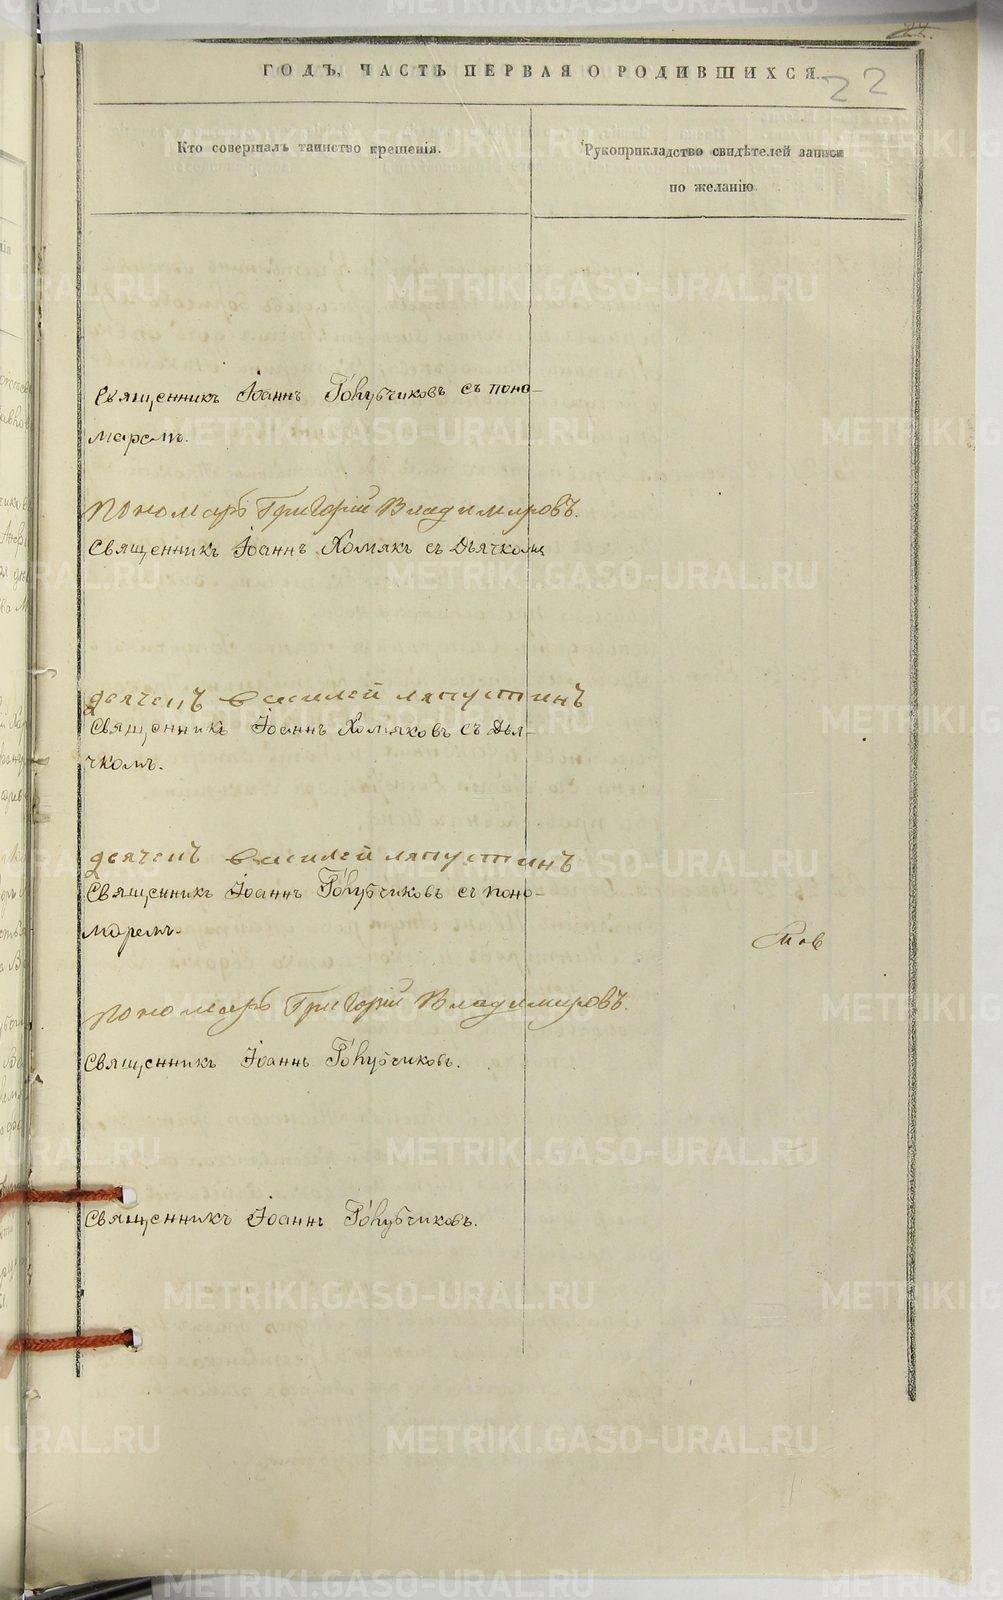 22.
ГОДЪ, ЧАСТЬ ПЕРВАЯ О РОДИВШИХСЯ.
22
Кто совершалъ таинство крещенія.
Рукоприкладство свидѣтелей записи
по желанію.
Священникъ Іоаннъ Голубчиковъ съ поно-
маремъ.
Пономарь Григорій Владимировъ.
Священникъ Іоаннъ Хомяк съ Дьячкомъ
дьячекъ василей ляпустинъ
Священникъ Іоаннъ Хомяковъ съ Дья-
чкомъ.
дьячекъ василей ляпустинъ
Священникъ Іоаннъ Голубчиковъ съ поно-
маремъ.
Пономарь Григорій Владимировъ.
Священникъ Іоаннъ Голубчиковъ.
Священникъ Іоаннъ Голубчиковъ.
METRIKI.GASO-URAL.RU